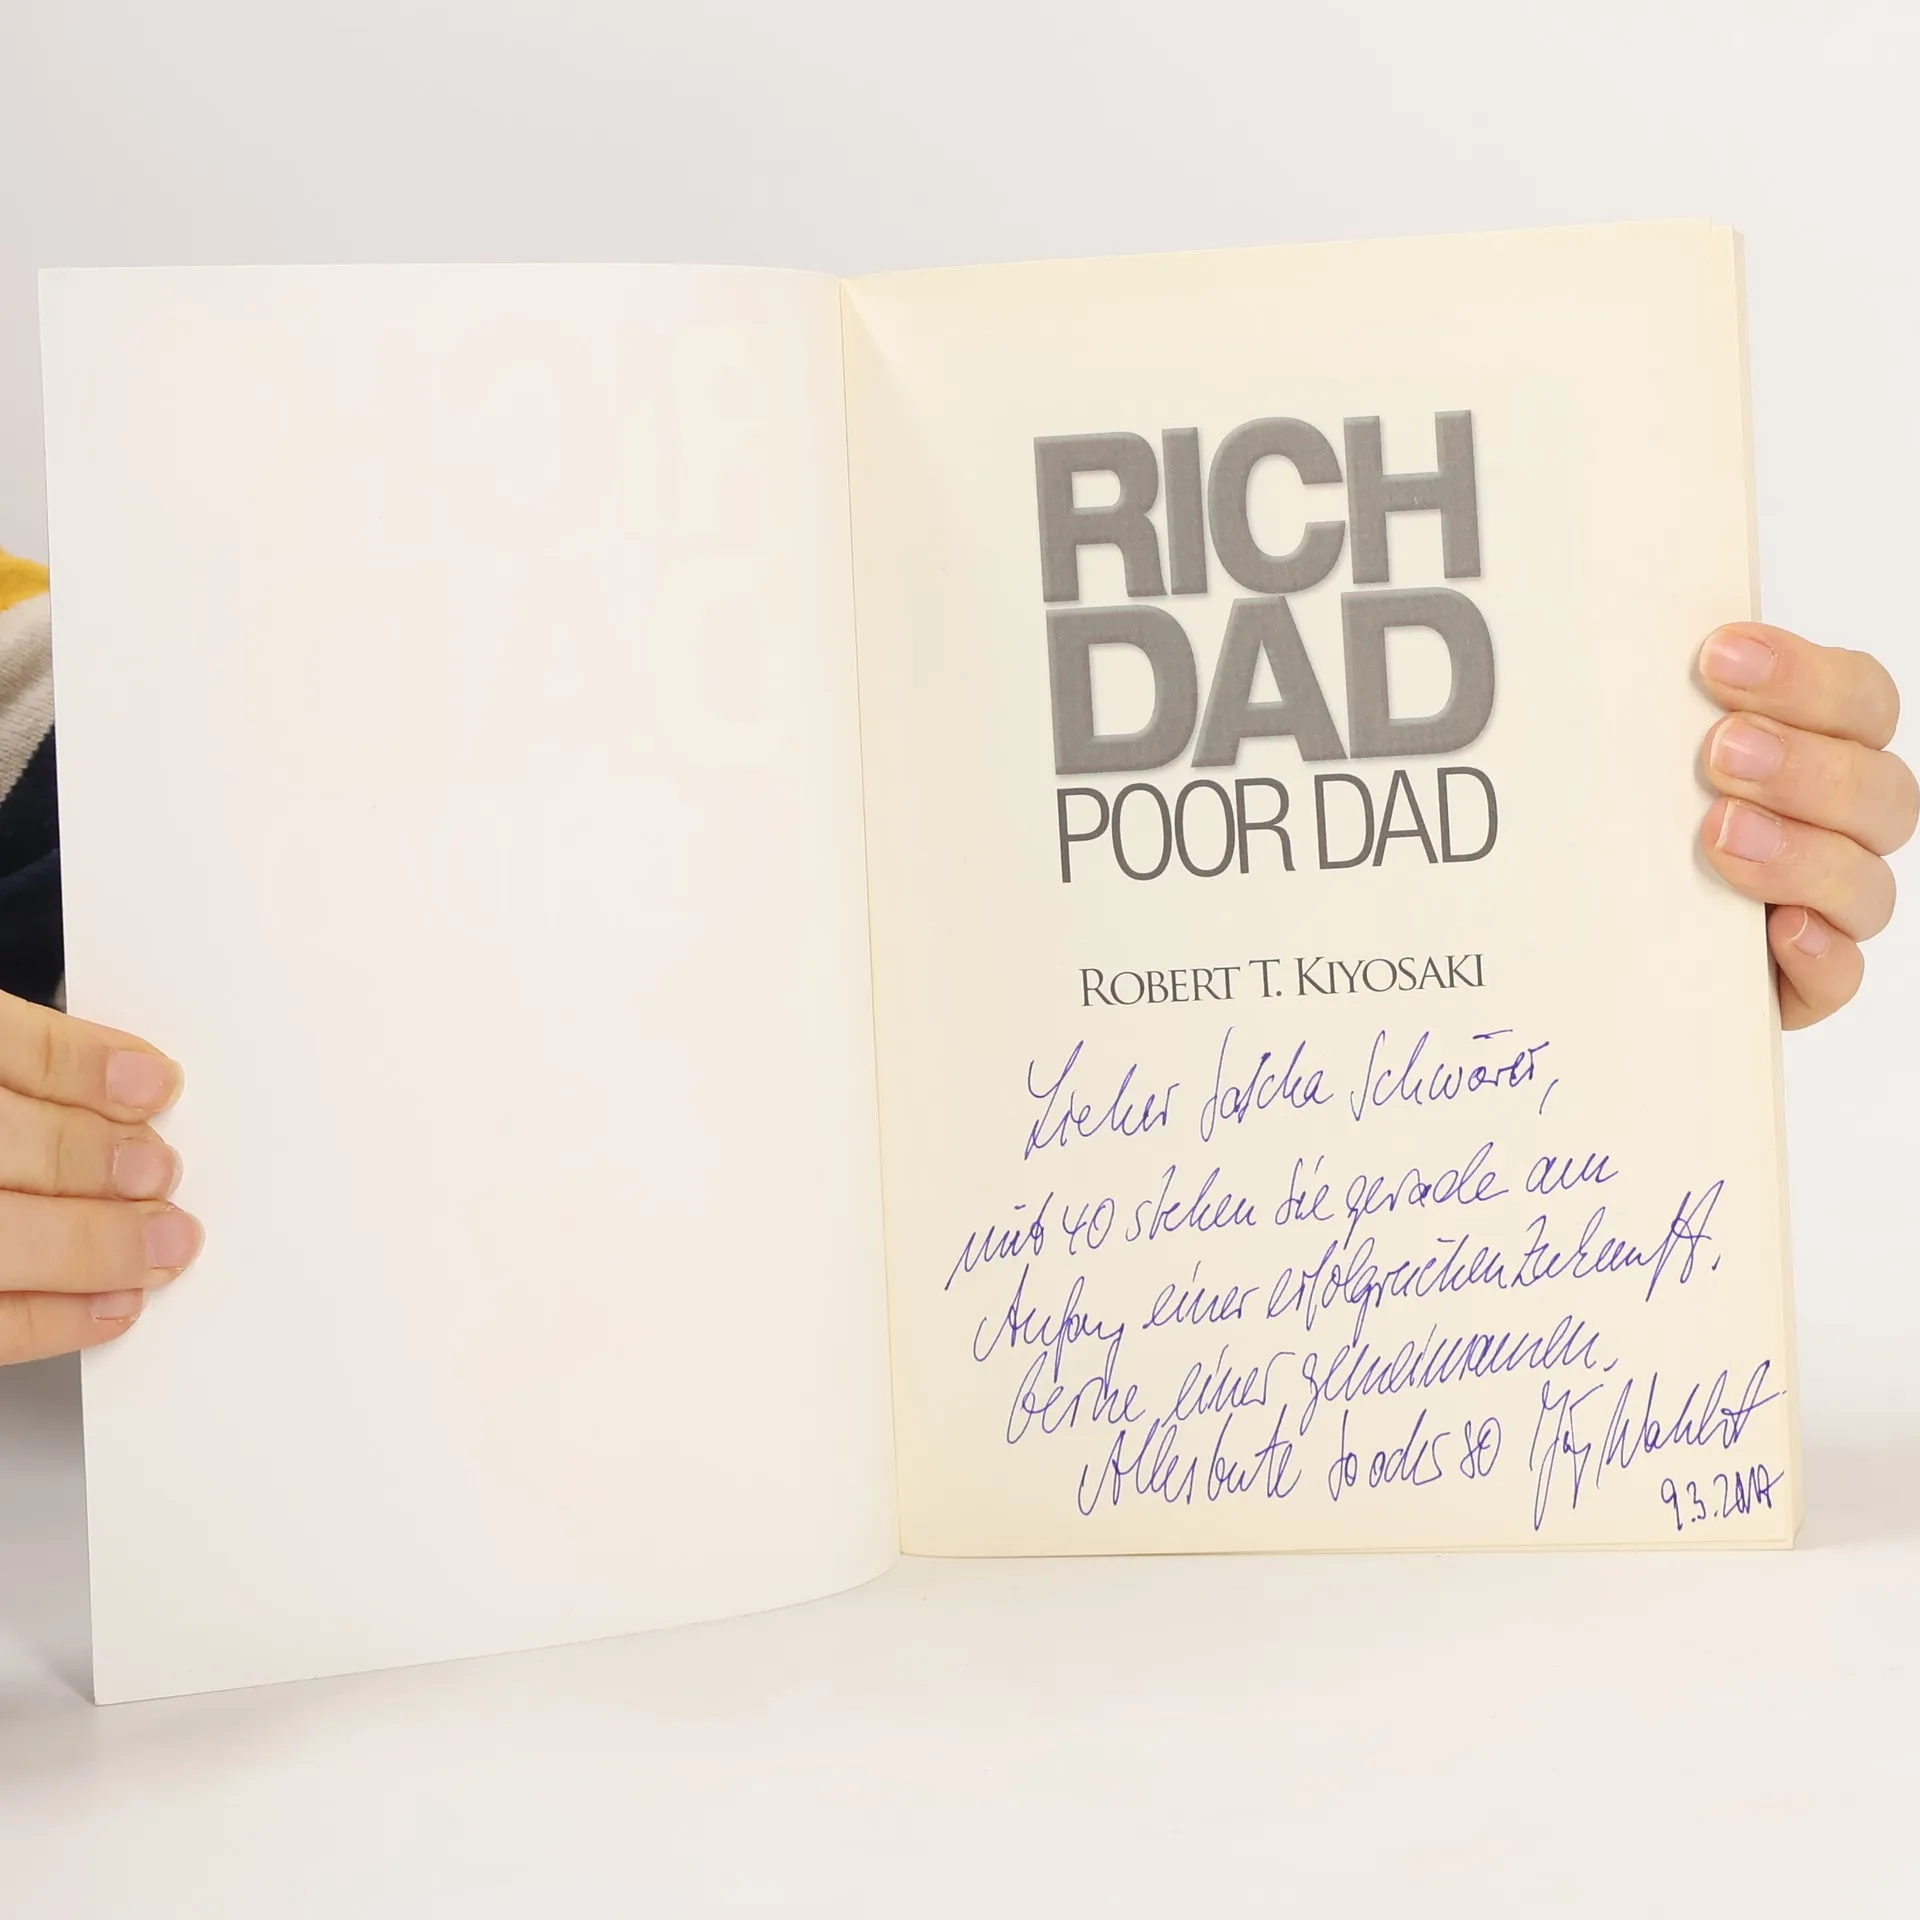 RICH
DAD
POOR DAD
ROBERT T. KIYOSAKI
Lieber Sascha Schwörer,
mit 40 stehen Sie gerade am
Anfang einer erfolgreichen Zukunft,
Gerne einer gemeinsamen.
Alles Gute
9.3.2017